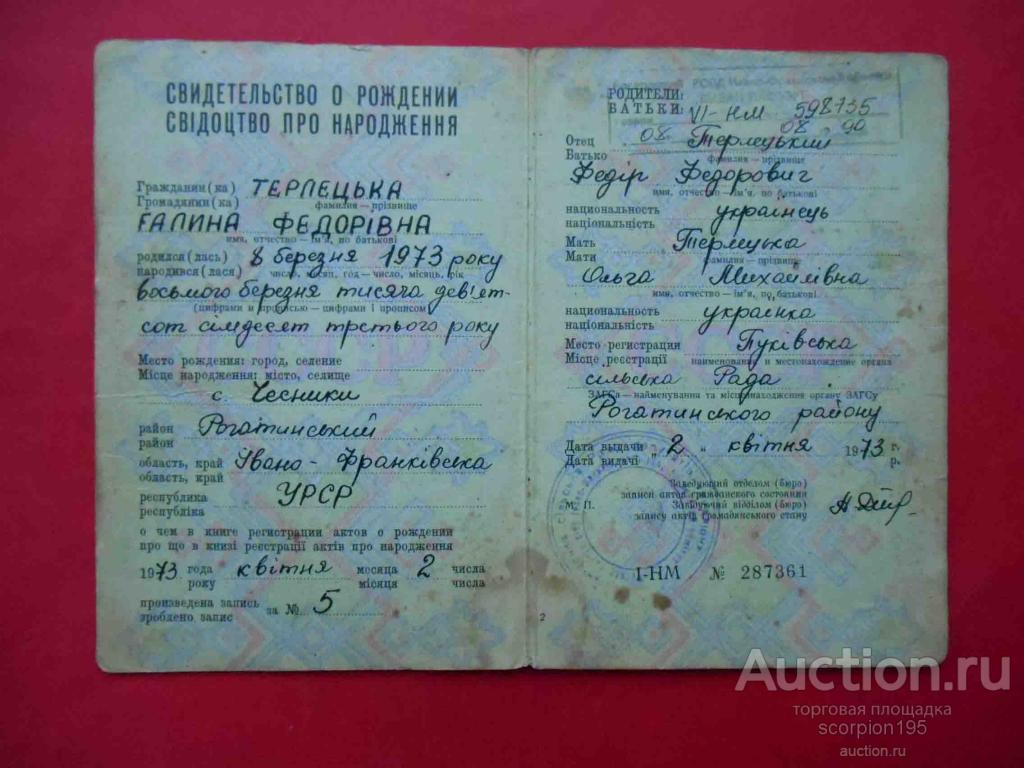 СВИДЕТЕЛЬСТВО О РОЖДЕНИИ
СВІДОЦТВО ПРО НАРОДЖЕННЯ
Гражданин(ка) ТЕРЛЕЦЬКА
Громадянин(ка) фамилия — прізвище
ГАЛИНА ФЕДОРІВНА
имя, отчество — ім'я, по батькові
родился(лась) 8 березня 1973 року
народився(лася) число, месяц, год — число, місяць, рік
восьмого березня тисяча дев'ят-
(цифрами и прописью — цифрами і прописом)
сот сімдесят третього року
Место рождения: город, селение
Місце народження: місто, селище
с. Чесники
район Рогатинський
район
область, край Івано-Франківська
область, край
республика УРСР
республіка
о чем в книге регистрации актов о рождении
про що в книзі реєстрації актів про народження
1973 года квітня месяца 2 числа
року місяця числа
произведена запись за № 5
зроблено запис
РОДИТЕЛИ:
БАТЬКИ: VI-НМ 598735
08. 08. 90
Отец Терлецький
Батько фамилия — прізвище
Федір Федорович
имя, отчество — ім'я, по батькові
национальность українець
національність
Мать Терлецька
Мати фамилия — прізвище
Ольга Михайлівна
имя, отчество — ім'я, по батькові
национальность українка
національність
Место регистрации Пуківська
Місце реєстрації наименование и местонахождение органа
сільська Рада
ЗАГСа — найменування та місцезнаходження органу ЗАГСу
Рогатинського району
Дата выдачи „ 2 „ квітня 1973 г.
Дата видачі р.
Заведующий отделом (бюро)
записи актов гражданского состояния
М. П. Завідуючий відділом (бюро)
запису актів громадянського стану
I-НМ № 287361
2
Auction.ru
торговая площадка
scorpion195
auction.ru